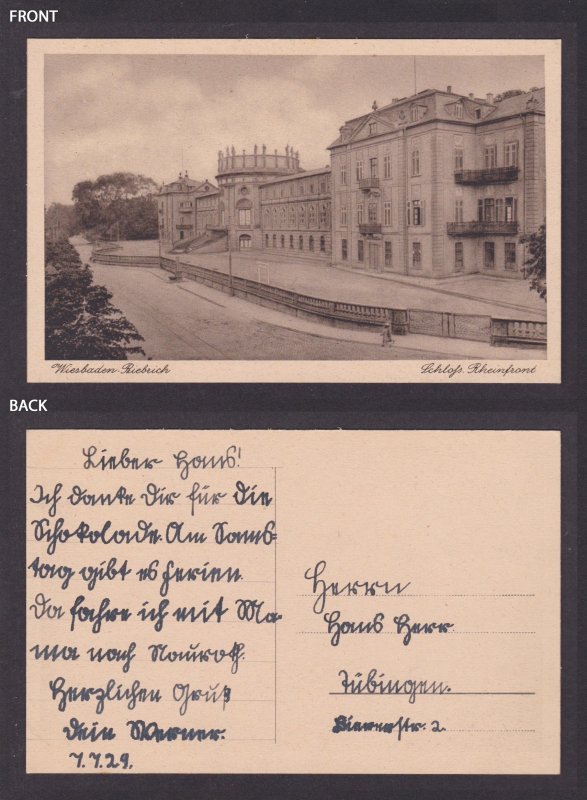 FRONT
Wiesbaden-Biebrich
Schloß, Rheinfront
BACK
Lieber Hans!
Ich danke Dir für die
Schokolade. Am Sams-
tag gibt es Ferien.
Da fahre ich mit Ma-
ma nach Nauroth.
Herzlichen Gruß
dein Werner.
7.7.29.
Herrn
Hans Herr
Tübingen.